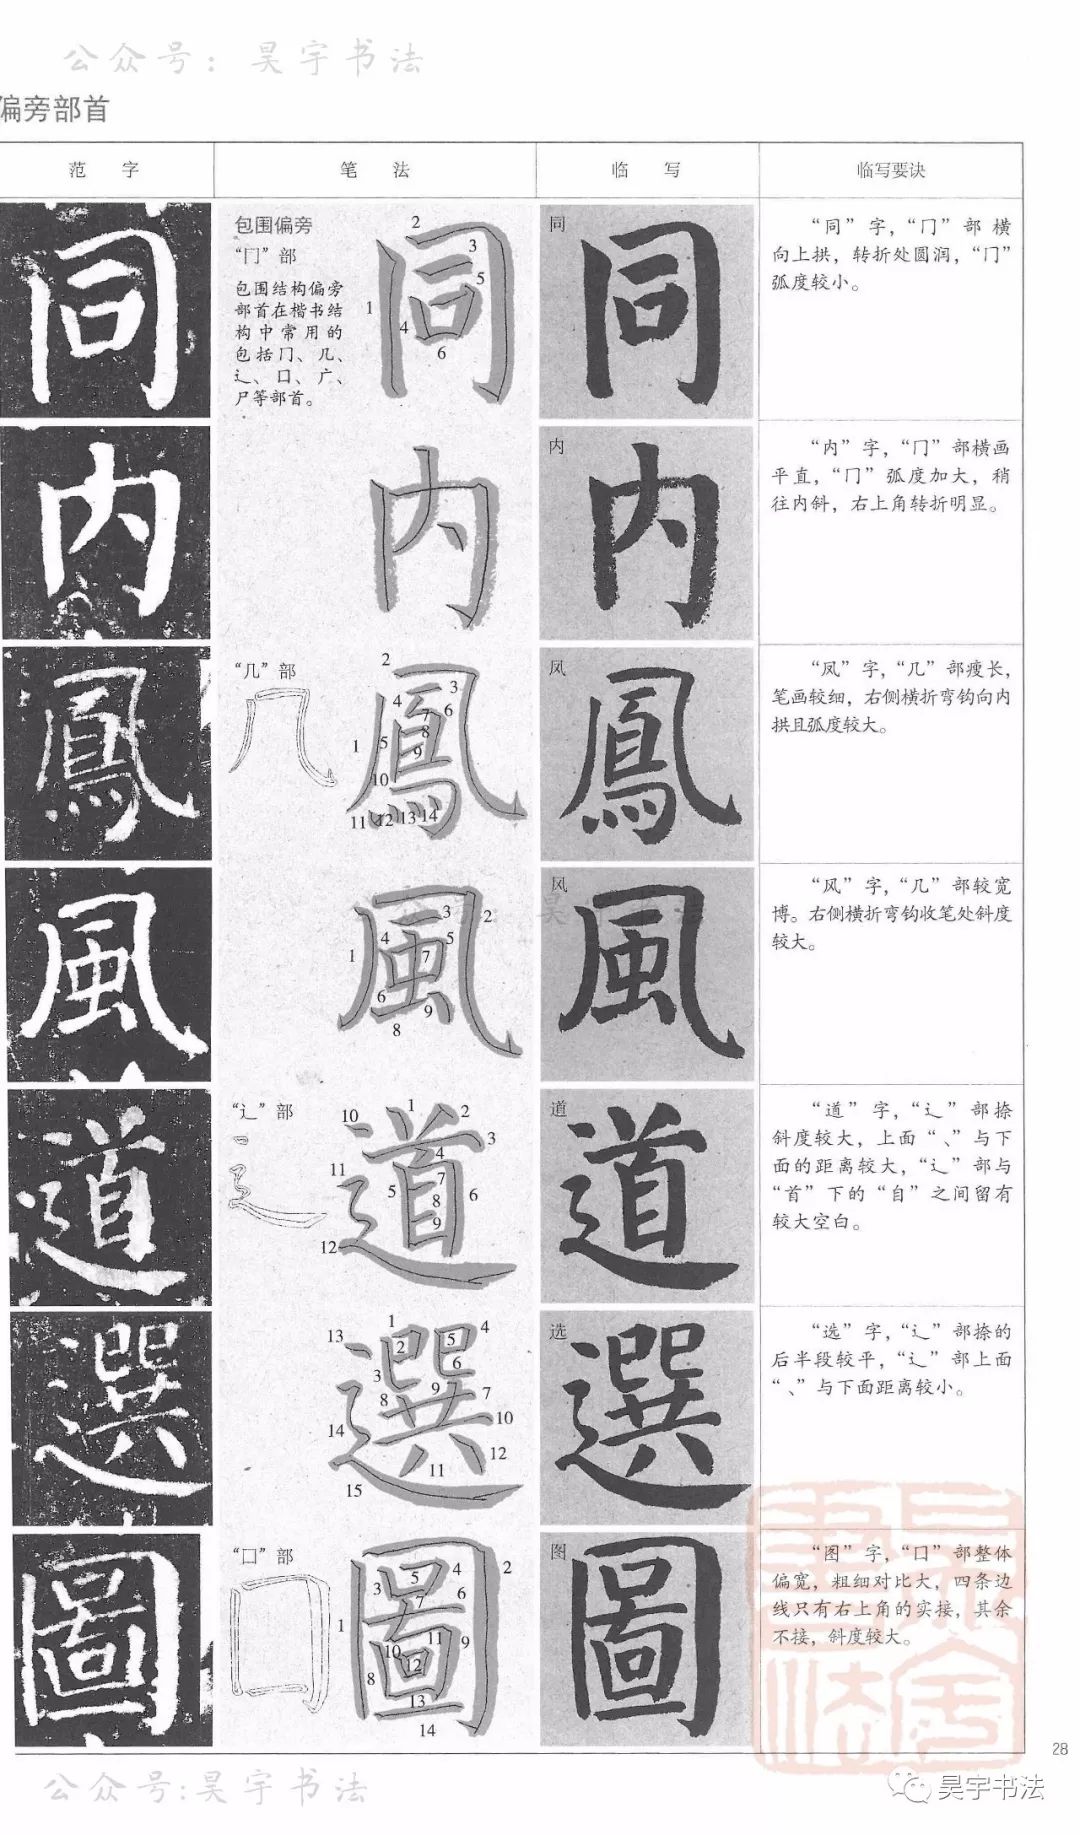 公众号：昊宇书法
偏旁部首
范 字
笔 法
临 写
临写要诀
同
包围偏旁
“冂”部
包围结构偏旁
部首在楷书结
构中常用的
包括冂、几、
辶、口、广、
尸等部首。
同
1
2
3
4
5
6
同
同
“同”字，“冂”部横
向上拱，转折处圆润，“冂”
弧度较小。
内
内
内
内
“内”字，“冂”部横画
平直，“冂”弧度加大，稍
往内斜，右上角转折明显。
鳳
“几”部
几
鳳
1
2
3
4
5
6
8
9
10
11 12 13 14
凤
鳳
“凤”字，“几”部瘦长，
笔画较细，右侧横折弯钩向内
拱且弧度较大。
風
風
1
2
3
4
5
6
7
8
9
风
風
“风”字，“几”部较宽
博。右侧横折弯钩收笔处斜度
较大。
道
“辶”部
辶
道
1
2
3
4
5
6
7
8
9
10
11
12
道
道
“道”字，“辶”部捺
斜度较大，上面“、”与下
面的距离较大，“辶”部与
“首”下的“自”之间留有
较大空白。
選
選
1
2
3
4
5
6
7
8
9
10
11
12
13
14
15
选
選
“选”字，“辶”部捺的
后半段较平，“辶”部上面
“、”与下面距离较小。
圖
“口”部
口
圖
1
2
3
4
5
6
7
8
9
10
11
12
13
14
图
圖
“图”字，“口”部整体
偏宽，粗细对比大，四条边
线只有右上角的实接，其余
不接，斜度较大。
28
公众号:昊宇书法
昊宇书法